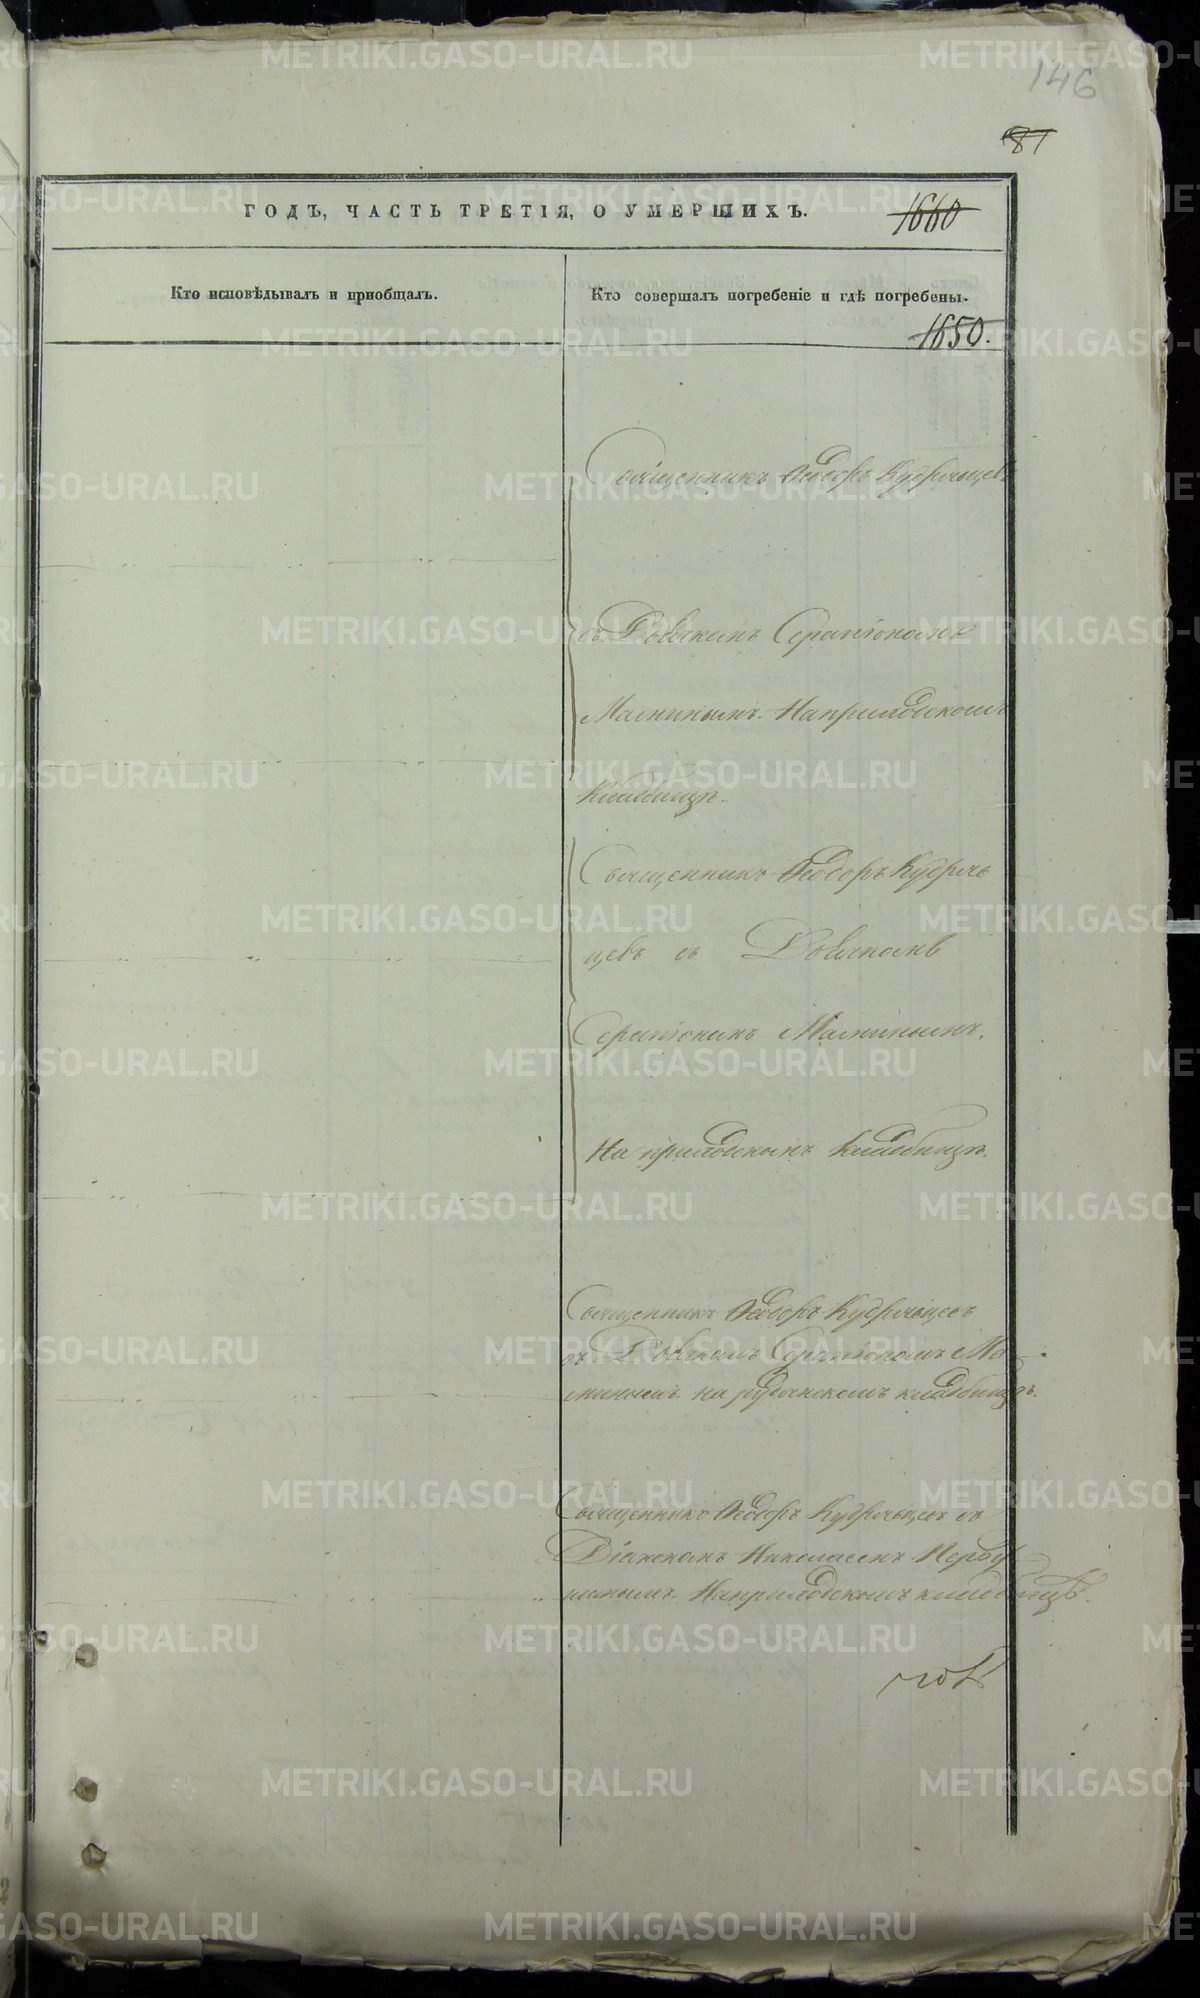 146
81
ГОДЪ, ЧАСТЬ ТРЕТІЯ, О УМЕРШИХЪ.
1660
Кто исповѣдывалъ и пріобщалъ.
Кто совершалъ погребеніе и гдѣ погребены.
1650.
Священникъ Ѳеодоръ Кудрявцевъ
съ Дьякомъ Серапіономъ
Наприходскомъ
Кладбищѣ.
Священникъ Ѳеодоръ Кудряв
цевъ съ
Серапіономъ
На приходскомъ Кладбищѣ.
Священникъ Ѳеодоръ Кудрявцевъ
съ Серапіономъ Ма
на кладбищѣ.
Священникъ Ѳеодоръ Кудрявцевъ съ
Діакономъ Николаемъ Перву
шинымъ. Наприходскомъ кладбищѣ.
METRIKI.GASO-URAL.RU